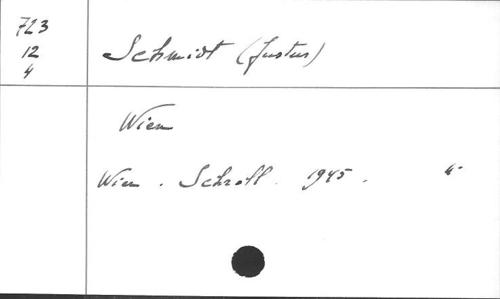 723
12
4
Schmidt (Justus)
Wien
Wien . Schroll . 1945 . 4°